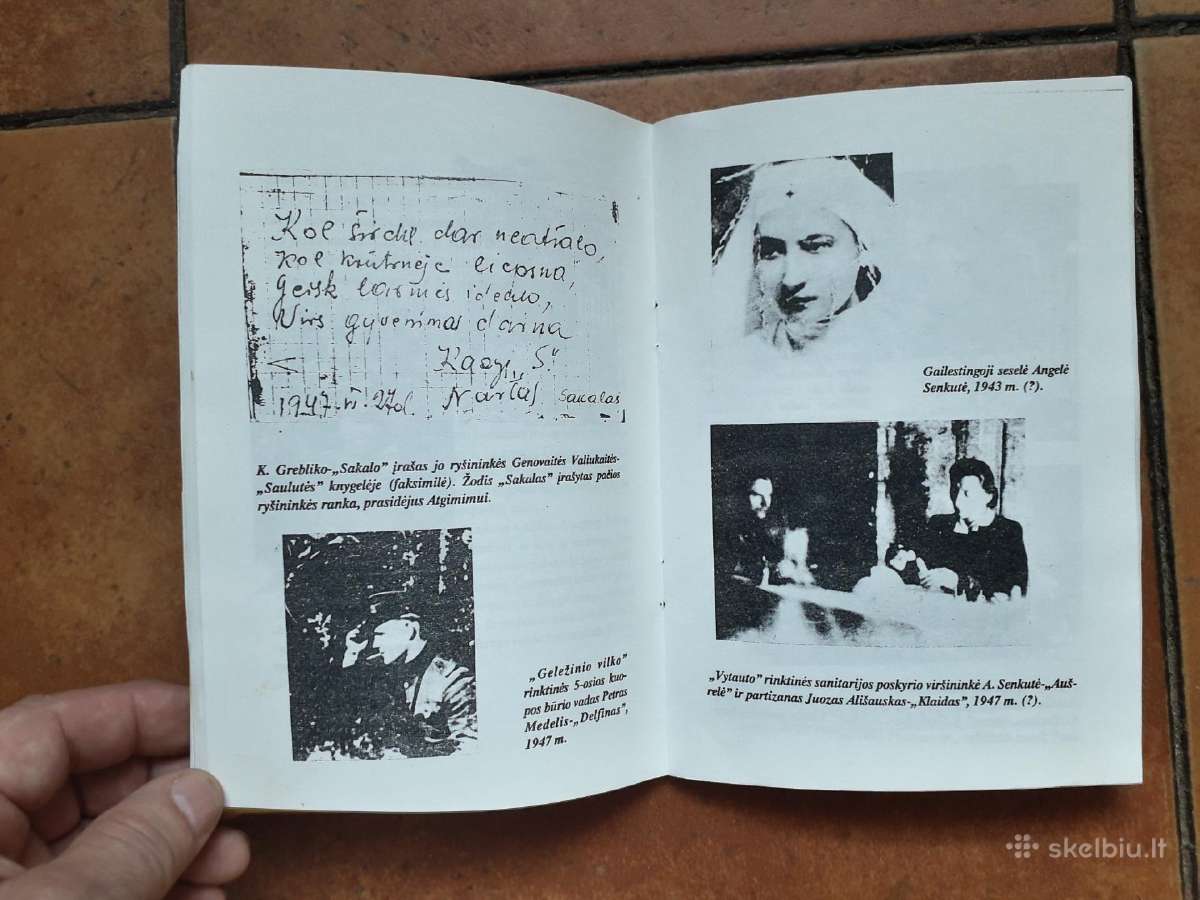 Kol širdis dar neatšalo,
kol krūtinėje liepsna,
Geisk laimės idealo,
Virs gyvenimas daina
"S."
1947. VI. 27d.
Sakalas
K. Grebliko-„Sakalo” įrašas jo ryšininkės Genovaitės Valiukaitės-
„Saulutės” knygelėje (faksimilė). Žodis „Sakalas” įrašytas pačios
ryšininkės ranka, prasidėjus Atgimimui.
„Geležinio vilko”
rinktinės 5-osios kuo-
pos būrio vadas Petras
Medelis-„Delfinas”,
1947 m.
Gailestingoji seselė Angelė
Senkutė, 1943 m. (?).
„Vytauto” rinktinės sanitarijos poskyrio viršininkė A. Senkutė-„Auš-
relė” ir partizanas Juozas Ališauskas-„Klaidas”, 1947 m. (?).
skelbiu.lt